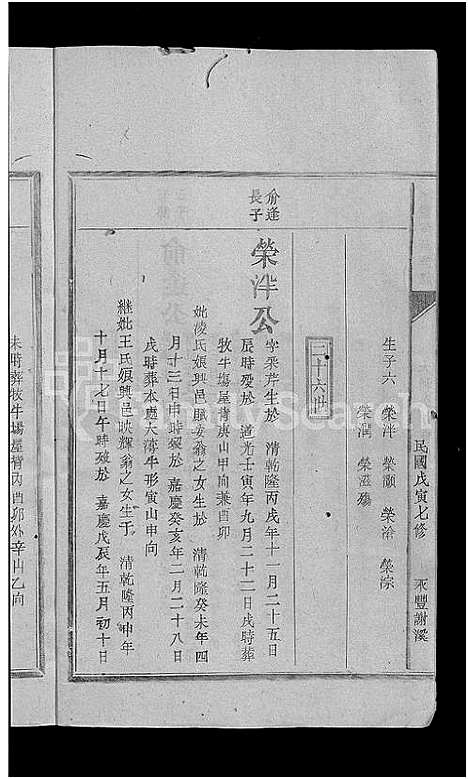 民國戊寅七修　永豐謝溪
生子六　榮泮　榮顯　榮洽　榮淙
榮潤　榮滋殤
三十六世
俞逢
長子
榮泮公
字采芹生於　清乾隆丙戌年十一月二十五日
辰時歿於　道光壬寅年九月二十二日戌時葬
牧牛場屋背庚山甲向兼酉卯
妣凌氏娘興邑賜安翁之女生於　清乾隆癸未年四
月十三日申時歿於　嘉慶癸亥年二月二十八日
戌時葬本處大湾牛形寅山申向
継妣王氏娘興邑映輝翁之女生于　清乾隆丙申年
十月十七日午時歿於　嘉慶戊辰年五月初十日
未時葬牧牛場屋背丙
酉卯外辛山乙向